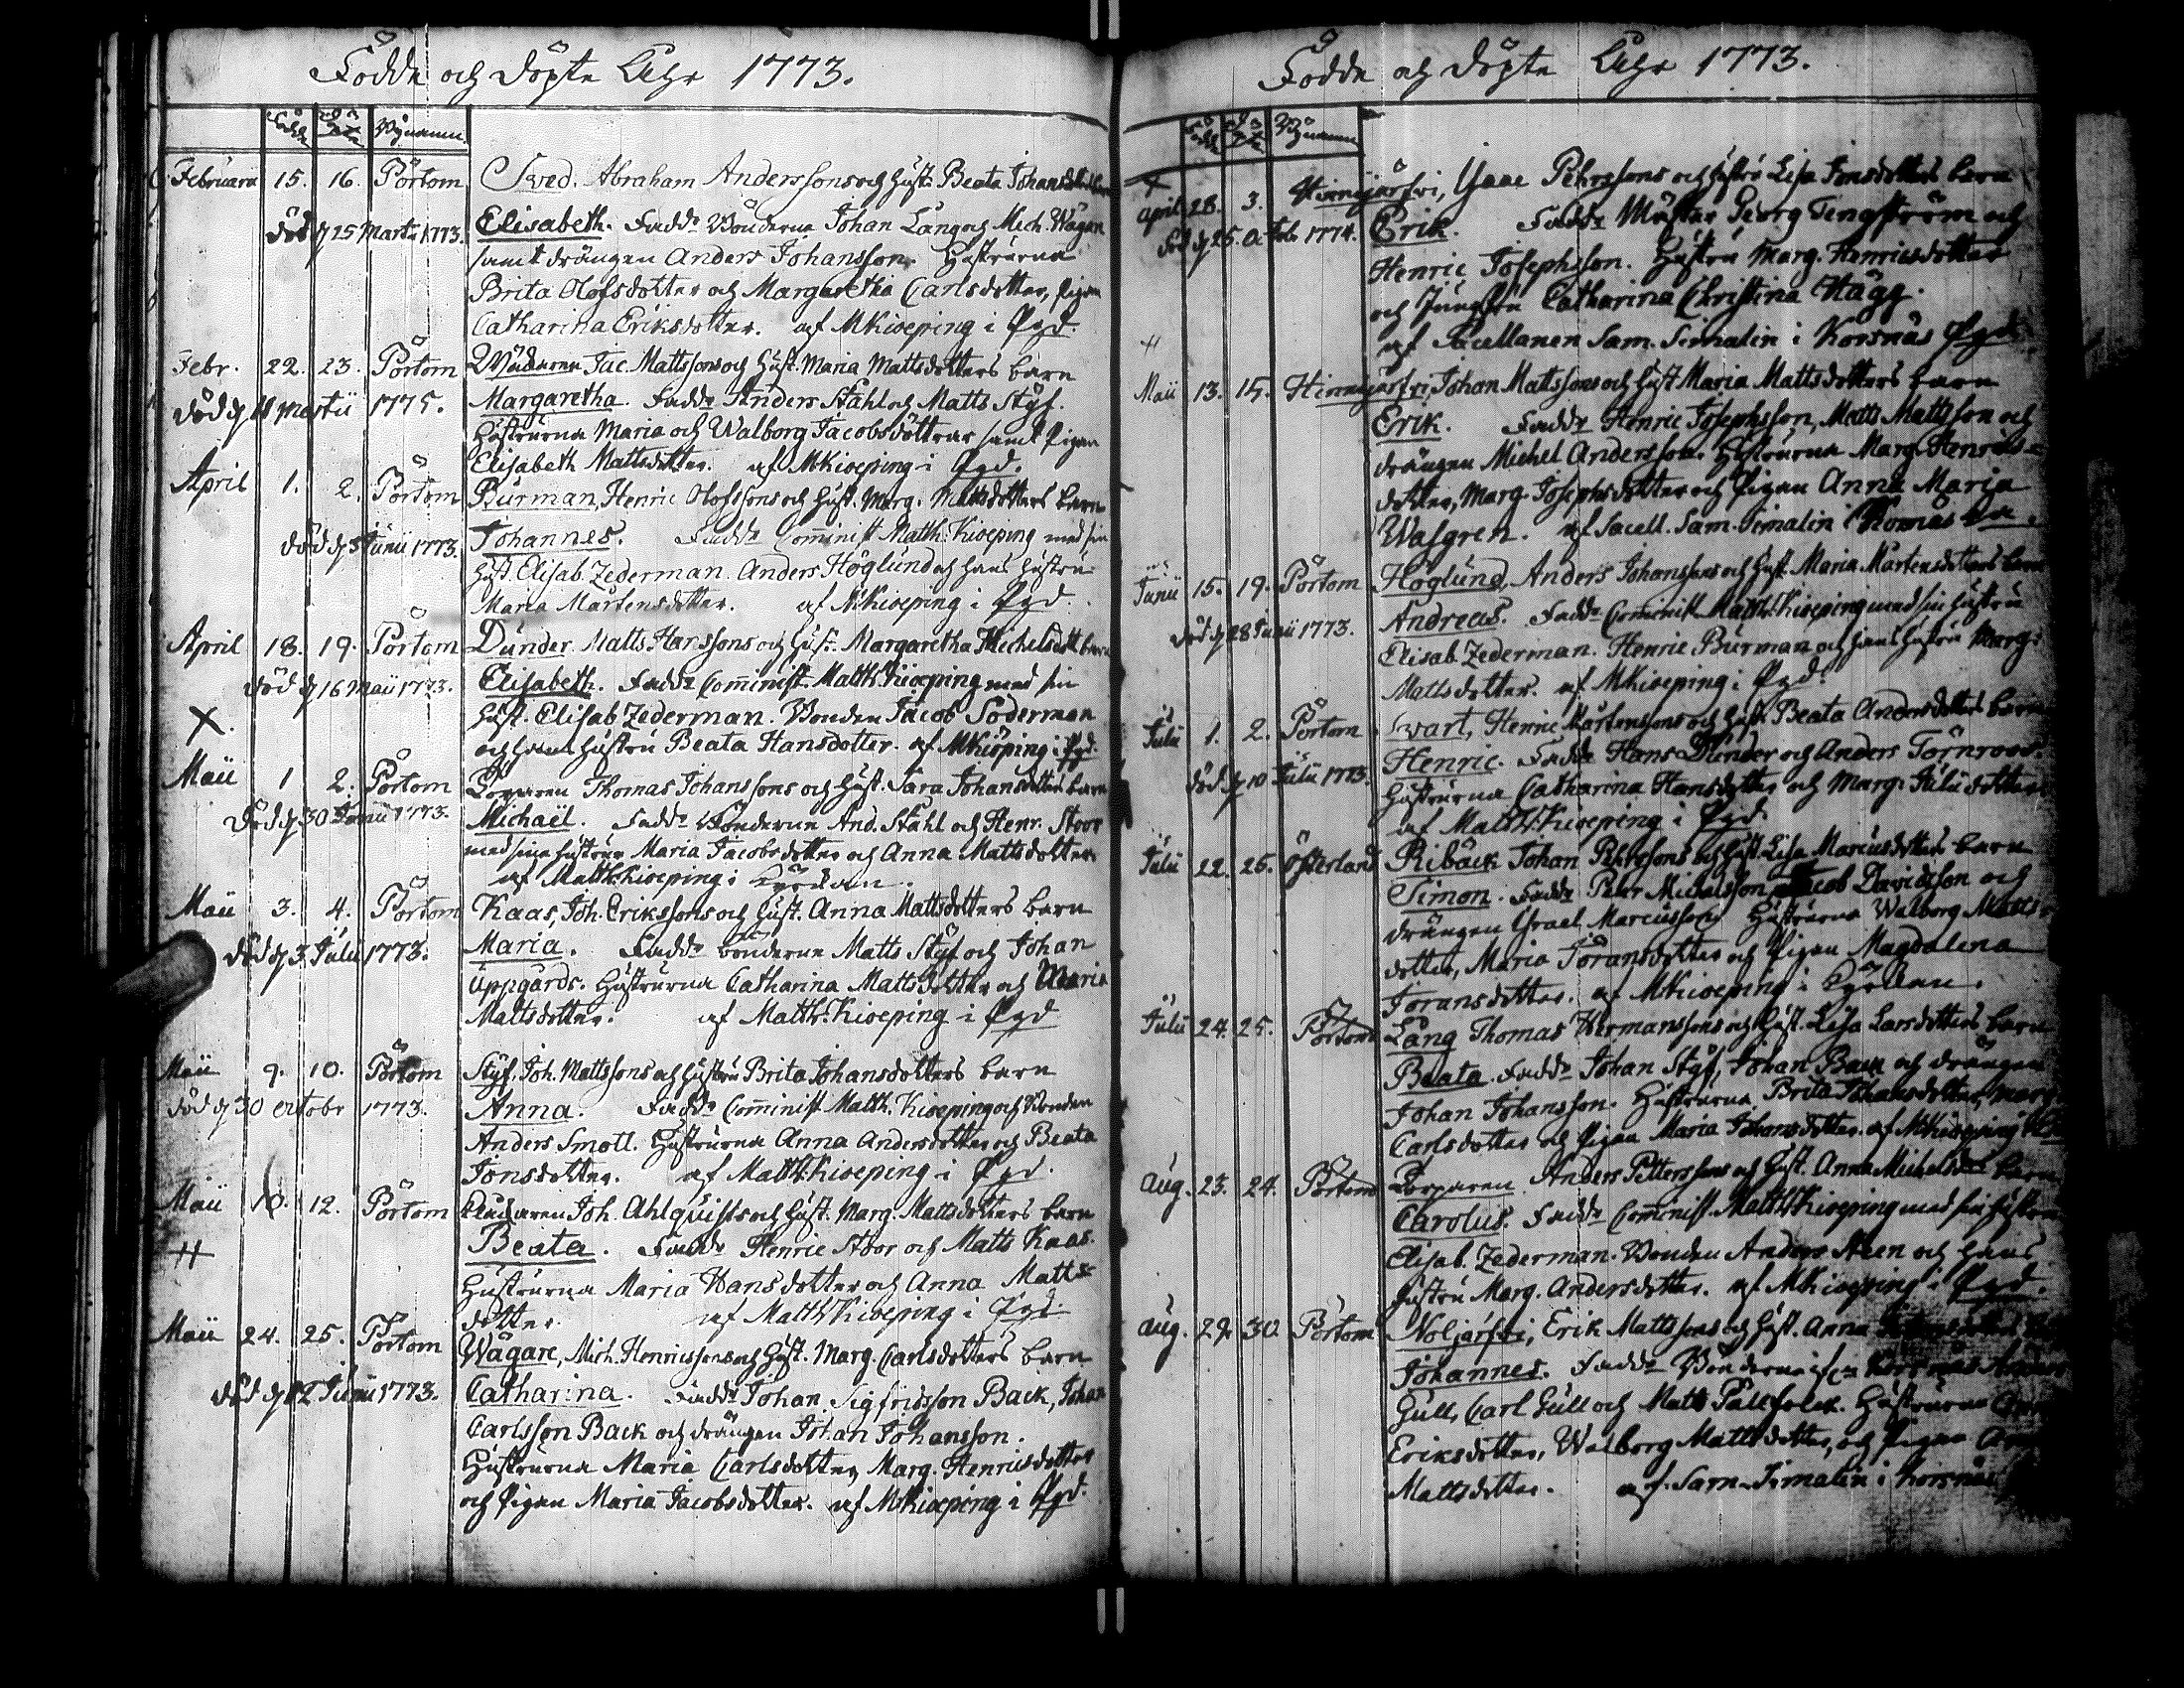 Födde och döpte Åhr 1773.
Födde Döpte Bynamn
Februarii 15. 16. Pörtom Sved. Abraham Anderssons och Hust. Beata Johansdotters barn
död d 25 Martii 1773. Elisabeth. Fadd. Bönderne Johan Lång och Mich. Wägar
samt drängen Anders Johansson. Hustrurna
Brita Olofsdotter och Margaretha Carlsdotter, Pigan
Catharina Eriksdotter. af MKioeping i Pgd
Febr. 22. 23. Pörtom Jac. Mattssons och Hust. Maria Mattsdotters barn
död d 18 Martii 1775. Margaretha. Fadd. Anders Ståhl och Matts Styf.
Hustrurna Maria och Walborg Jacobsdöttrar samt Pigan
Elisabeth Mattsdotter. af MKioeping i Pgd.
April 1. 2. Pörtom Burman, Henric Olofssons och Hust. Marg. Mattsdotters barn
död d 5 Junii 1773. Johannes. Fadd. Com̄inist. Matth. Kioeping med sin
Hust. Elisab. Zederman. Anders Höglund och hans hustru
Maria Mårtensdotter. af MKioeping i Pgd.
April 18. 19. Pörtom Dunder. Matts Hanssons och Hust. Margaretha Michelsdott. barn
död d 16 Maii 1773. Elisabeth. Fadd. Com̄inist. Matth. Kioeping med sin
Hust. Elisab. Zederman. Bonden Jacob Söderman
X. och hans hustru Beata Hansdotter. af MKiöping i Pgd.
Maii 1 2. Pörtom Torparen Thomas Johanssons och Hust. Sara Johansdotters barn
död d 30 Junii 1773. Michaël. Fadd. Bönderne And. Ståhl och Henr. Stoor
med sina hustrur Maria Jacobsdotter och Anna Mattsdotter
af Matth. Kioeping i Kyrckan.
Maii 3. 4. Pörtom Kaas, Joh. Erikssons och Hust. Anna Mattsdotters barn
död d 3 Julii 1773. Maria. Fadd. bönderne Matts Styf och Johan
Uppgårds. Hustrurna Catharina Mattsdotter och Maria
Mattsdotter. af Matth. Kioeping i Pgd
Maii 9. 10. Pörtom Styf, Joh. Mattssons och hustru Brita Johansdotters barn
död d 30 octobr 1773. Anna. Fadd. Com̄inist. Matth. Kioeping och Bonden
Anders Smått. Hustrurna Anna Andersdotter och Beata
Jonsdotter. af Matth. Kioeping i Pgd.
Maii 10. 12. Pörtom Joh. Ahlquists och Hust. Marg. Mattsdotters barn
H Beata. Fadd. Henric Stoor och Matts Kaas.
Hustrurna Maria Hansdotter och Anna Matts-
dotter. af Matth. Kioeping i Pgd.
Maii 24. 25. Pörtom Wägare, Mich. Henricssons och Hust. Marg. Carlsdotters barn
död d 12 Junii 1773. Catharina. Fadd. Johan Sigfridsson Back, Johan
Carlsson Back och drängen Johan Johansson.
Hustrurna Maria Carlsdotter, Marg. Henricsdotter
och Pigan Maria Jacobsdotter. af MKioeping i Pgd.
Födde och döpte Åhr 1773.
Födde Döpte Bynamn
X
April 28. 3. Hinnjärfvi, Isaac Pehrssons och hustru Lisa Jonsdotters barn
död d 25 1774. Erik. Fadd. Mäster Georg Tengström och
Henric Josephsson. Hustru Marg. Henricsdotter
och Jungfru Catharina Christina Hägg.
H af Sacellanen Sam. Simalin i Korsnäs Pgd.
Maii 13. 15. Hinnjärfvi, Johan Mattssons och Hust. Maria Mattsdotters barn
Erik. Fadd. Henric Josephsson, Matts Mattsson och
drängen Michel Andersson. Hustrurna Marg. Henrics-
dotter, Marg. Josephsdotter och Pigan Anna Maria
Wasgren. af Sacell. Sam. Simalin i Korsnäs
Junii 15. 19. Pörtom Höglund, Anders Johanssons och Hust. Maria Mårtensdotters barn
död d 28 Junii 1773. Andreas. Fadd. Com̄inist. Matth. Kioeping med sin hustru
Elisab. Zederman. Henric Burman och hans hustru Marg.
Mattsdotter. af MKioeping i Pgd.
Julii 1. 2. Pörtom Svart, Henric Mårtenssons och Hust. Beata Andersdotters barn
död d 10 Julii 1773. Henric. Fadd. Hans Dunder och Anders Törnroos.
Hustrurna Catharina Hansdotter och Marg.
af Matth. Kioeping i Pgd.
Julii 22. 25. Österland Ribäck Johan Pehrssons och Hust. Lisa Marcusdotters barn
Simon. Fadd. Pehr Michelsson, Jacob Davidsson och
drängen Israel Marcusson. Hustrurna Walborg Matts-
dotter, Maria Jöransdotter och Pigan Magdalena
Jöransdotter. af MKioeping i Kyrckan.
Julii 24. 25. Pörtom Lång Thomas Hermanssons och Hust. Lisa Larsdotters barn
Beata. Fadd. Johan Styf, Johan Back och drängen
Johan Johansson. Hustrurna Brita Johansdotter, Marg.
Carlsdotter och Pigan Maria Johansdotter. af MKioeping
Aug. 23. 24. Pörtom Torparen Anders Petterssons och Hust. Anna Michelsdott. barn
Carolus. Fadd. Com̄inist. Matth. Kioeping med sin hustru
Elisab. Zederman. Bonden Anders Steen och hans
hustru Marg. Andersdotter. af MKioeping i Pgd.
Aug. 29. 30 Pörtom Noljärfvi, Erik Mattssons och Hust. Anna
Johannes. Fadd. Bönderne
Gull, Carl Gull och Matts Pålsfolck. Hustrurna
Eriksdotter, Walborg Mattsdotter, och Pigan
Mattsdotter. af Sam. Simalin i Korsnäs